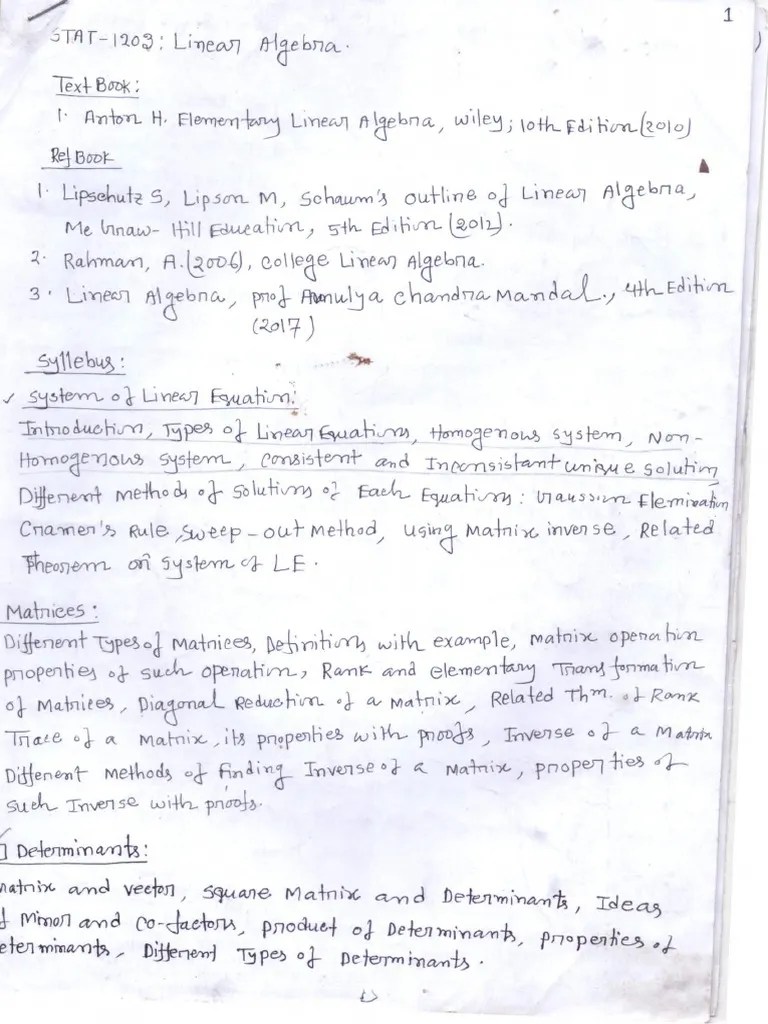 1
STAT-1203: Linear Algebra.
Text Book:
1. Anton H. Elementary Linear Algebra, wiley; 10th Edition (2010)
Ref Book
1. Lipschutz S, Lipson M, Schaum's outline of Linear Algebra,
Mc Graw-Hill Education, 5th Edition (2012).
2. Rahman, A. (2006), College Linear Algebra.
3. Linear Algebra, prof Amulya chandra Mandal., 4th Edition
(2017)
Syllebus:
✓ System of Linear Equation:
Introduction, Types of Linear Equations, Homogenous system, Non-
Homogenous system, consistent and Inconsistant unique solution
Different methods of solutions of Each Equations: Gaussian Elemination
Cramer's Rule, sweep-out Method, using Matrix inverse, Related
Theorem on system of LE.
Matrices:
Different Types of Matrices, Definitions with example, matrix operation
properties of such operation, Rank and elementary Transformation
of Matrices, Diagonal Reduction of a matrix, Related Thm. of Rank
Trace of a matrix, its properties with proofs, Inverse of a Matrix
Different Methods of finding Inverse of a Matrix, properties of
such Inverse with proofs.
Determinants:
matrix and vector, square Matrix and Determinants, Ideas
of Minor and co-factors, product of Determinants, properties of
eterminants, Different Types of Determinants.